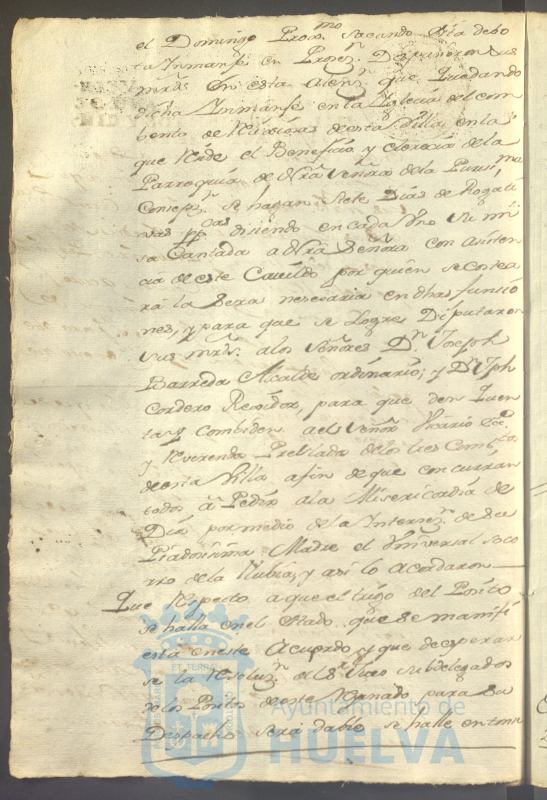 el Domingo Proxmo. sacando Sta debo
ta Ymmanse en Prosen. Dispusieron sus
mrds. Con esta atenn. que quedando
dha Ymmanse en la Yglecia del com
bento de Relixiosas de esta Villa, en la
que Reside el Beneficio y clerecia de la
Parroquia de Nra Señra de la Puriss.ma
Consepn. se hagan siete Dias de Rogati
vas ppcas disiendo en cada Uno su mi
sa Cantada a Nra Señora con asisten
cia de este Cavildo por quien se costea
rá la Sera nesesaria en dhas funsio
nes, y para que se Logre Diputaron
sus mrds. a los Señores Dn. Joseph
Barreda Alcalde ordinario, y Dn. Jph
Cordero Rexidor, para que den quen
ta y Combiden al Señor Vicario Ecco.
y Reverenda Prellada de los tres Combtos.
de esta Villa a fin de que concurran
todos a Pedir a la Misericordia de
Dios por medio de la Intersn. de su
Piadosisima Madre el Universal Soco
rro de la llubia, y asi lo Acordaron
Que Respecto a que el trigo del Posito
se halla en el estado que se manifi
esta en este Acuerdo, y que de esperar
se la Resoluzn. del Sr. Juez subdelegado
de los Positos de este Reynado para su
Despacho será dable se halle en tme
Ayuntamiento de
HUELVA